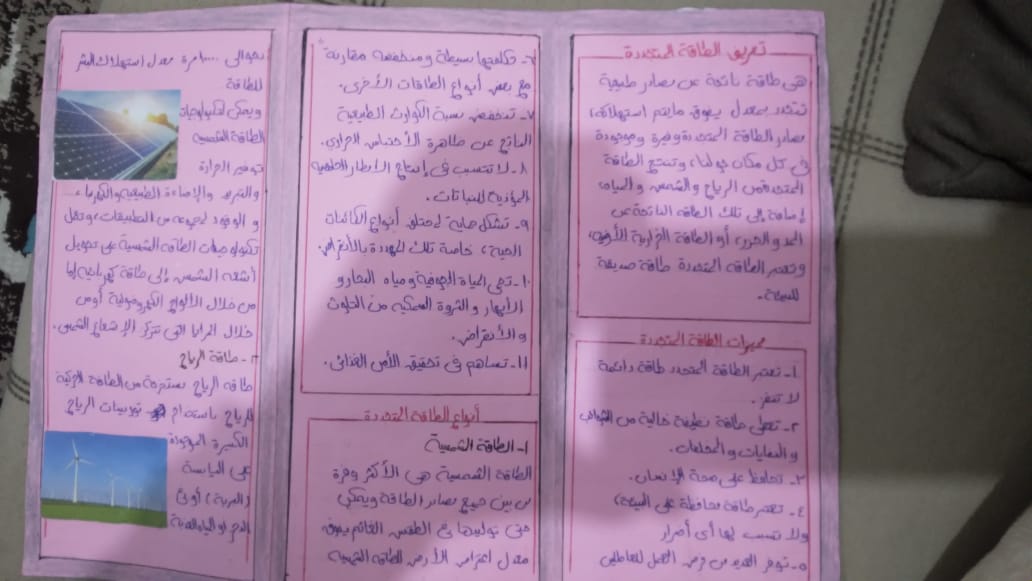 تعريف الطاقة المتجددة
هي طاقة ناتجة عن مصادر طبيعية
تتجدد بمعدل يفوق مايتم استهلاكه،
مصادر الطاقة المتجددة وفيرة وموجودة
في كل مكان حولنا، وتنتج الطاقة
المتجددة من الرياح والشمس والمياه،
إضافة إلى تلك الطاقة الناتجة عن
المد والجزر، أو الطاقة الحرارية الأرضية،
وتعتبر الطاقة المتجددة طاقة صديقة
للبيئة.
مميزات الطاقة المتجددة
١- تعتبر الطاقة المتجدد طاقة دائمة
لا تنفذ.
٢- تعطي طاقة نظيفة خالية من الشوائب
والنفايات والمخلفات.
٣- تحافظ على صحة الإنسان.
٤- تعتبر طاقة محافظة على البيئة،
ولا تسبب لها أي أضرار
٥- توفر العديد من فرص العمل للعاطلين
٦- تكلفتها بسيطة ومنخفضة مقارنة
مع بعض أنواع الطاقات الأخرى.
٧- تنخفض نسبة الكوارث الطبيعية
الناتج عن ظاهرة الأحتباس الحراري.
٨- لا تتسبب في إنتاج الأمطار الحمضية
المؤذية للنباتات.
٩- تشكل حماية لمختلف أنواع الكائنات
الحية، خاصة تلك المهددة بالأنقراض.
١٠- تحمي المياة الجوفية ومياه البحار و
الأنهار و الثروة السمكية من التلوث
والأنقراض.
١١- تساهم في تحقيق الأمن الغذائي.
أنواع الطاقة المتجددة
١- الطاقة الشمسية
الطاقة الشمسية هي الأكثر وفرة
من بين جميع مصادر الطاقة ويمكن
حتى توليدها في الطقس الغائم يفوق
معدل اعتراض الأرض للطاقة الشمسية
بحوالى ١٠٠٠٠ مرة معدل استهلاك البشر
للطاقة
ويمكن لتكنولوجيات
الطاقة الشمسية
توفير الحرارة
والتبريد والإضاءة الطبيعية والكهرباء
و الوقود لمجموعه من التطبيقات، وتعمل
تكنولوجيات الطاقة الشمسية على تحويل
أشعة الشمس إلى طاقة كهربائية إما
من خلال الألواح الكهروضوئية أو من
خلال المرايا التي تركز الإشعاع الشمسي.
٢- طاقة الرياح
طاقه الرياح مستمدة من الطاقة الحركية
للرياح باستخدام توربينات الرياح
الكبيرة الموجودة
على اليابسة
(البرية) أو في
البحر او المياه العذبة